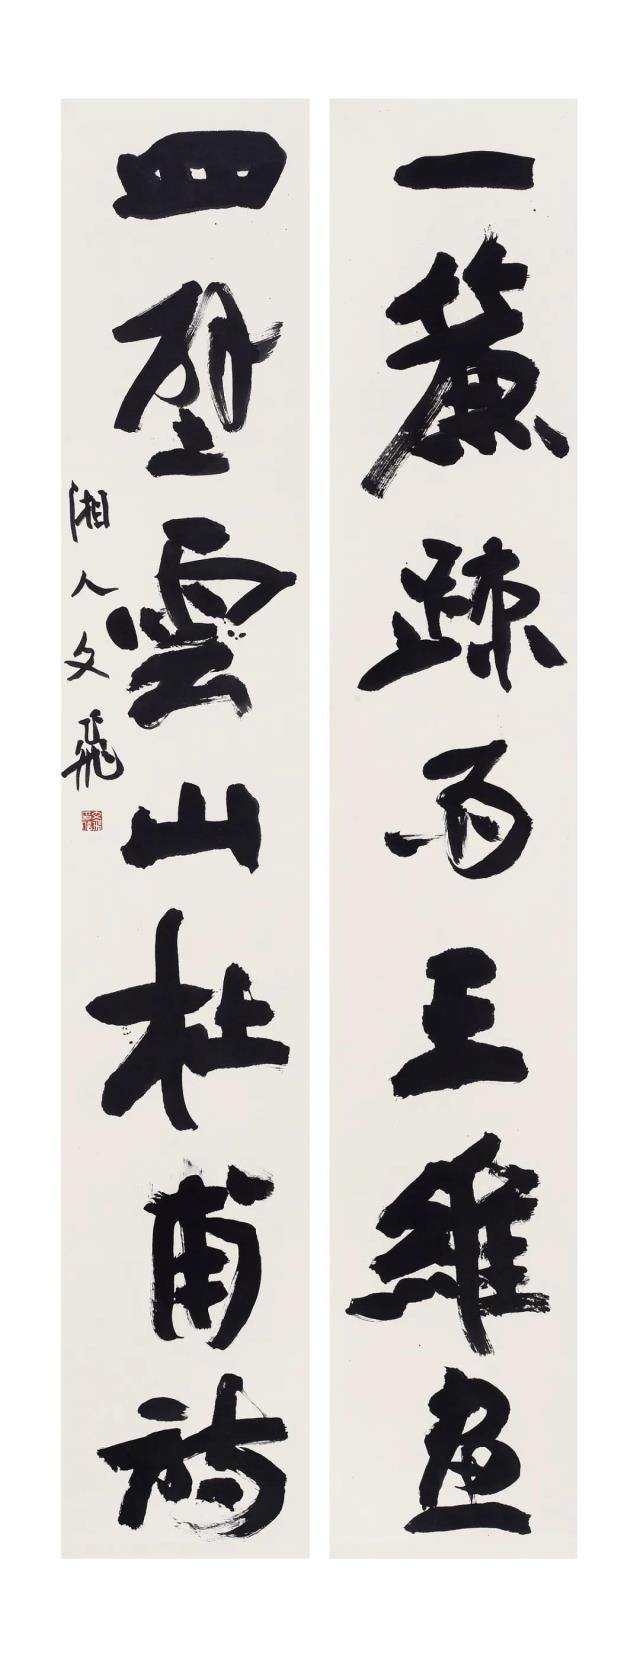 一簾疎雨王維画
四壁雲山杜甫詩
湘人文飛